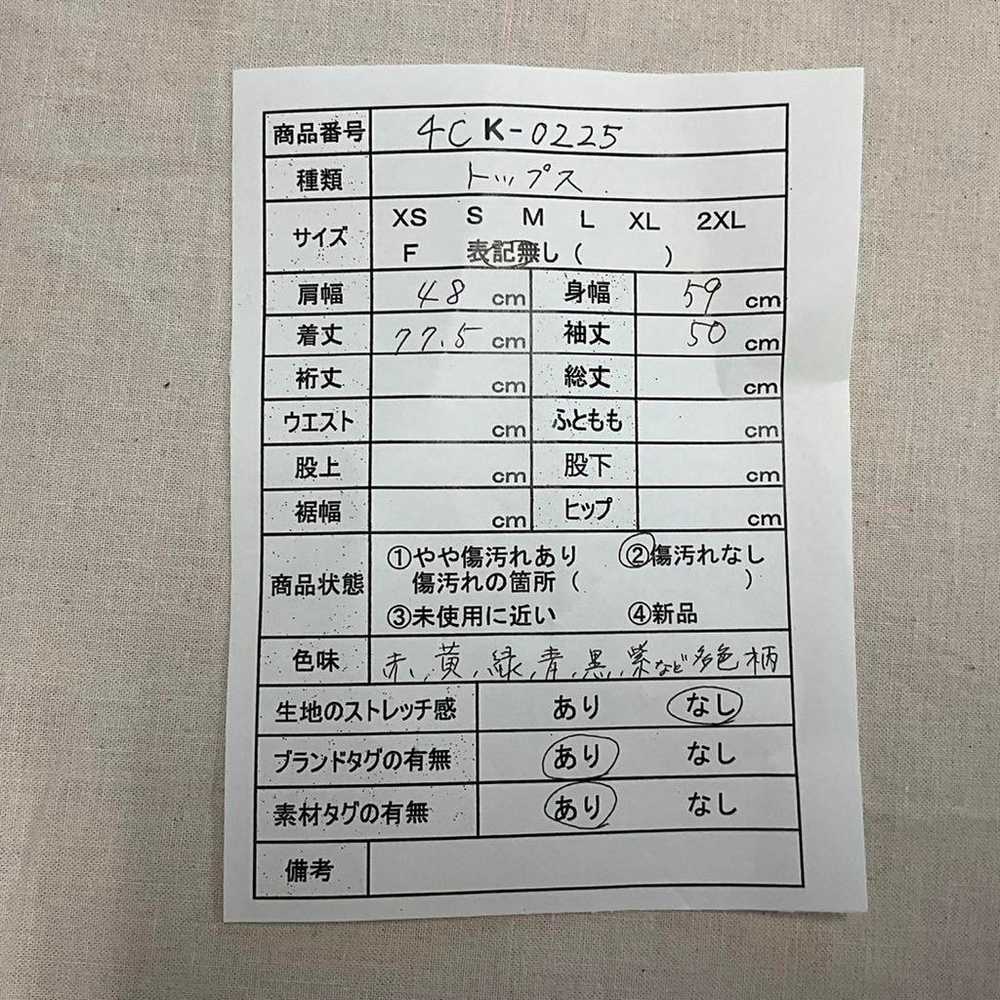 商品番号 4C K-0225
種類 トップス
サイズ XS S M L XL 2XL
F 表記無し ( )
肩幅 48 cm 身幅 59 cm
着丈 77.5 cm 袖丈 50 cm
裄丈 cm 総丈 cm
ウエスト cm ふともも cm
股上 cm 股下 cm
裾幅 cm ヒップ cm
商品状態 ①やや傷汚れあり ②傷汚れなし
傷汚れの箇所 ( )
③未使用に近い ④新品
色味 赤、黄、緑、青、黒、紫など多色柄
生地のストレッチ感 あり なし
ブランドタグの有無 あり なし
素材タグの有無 あり なし
備考